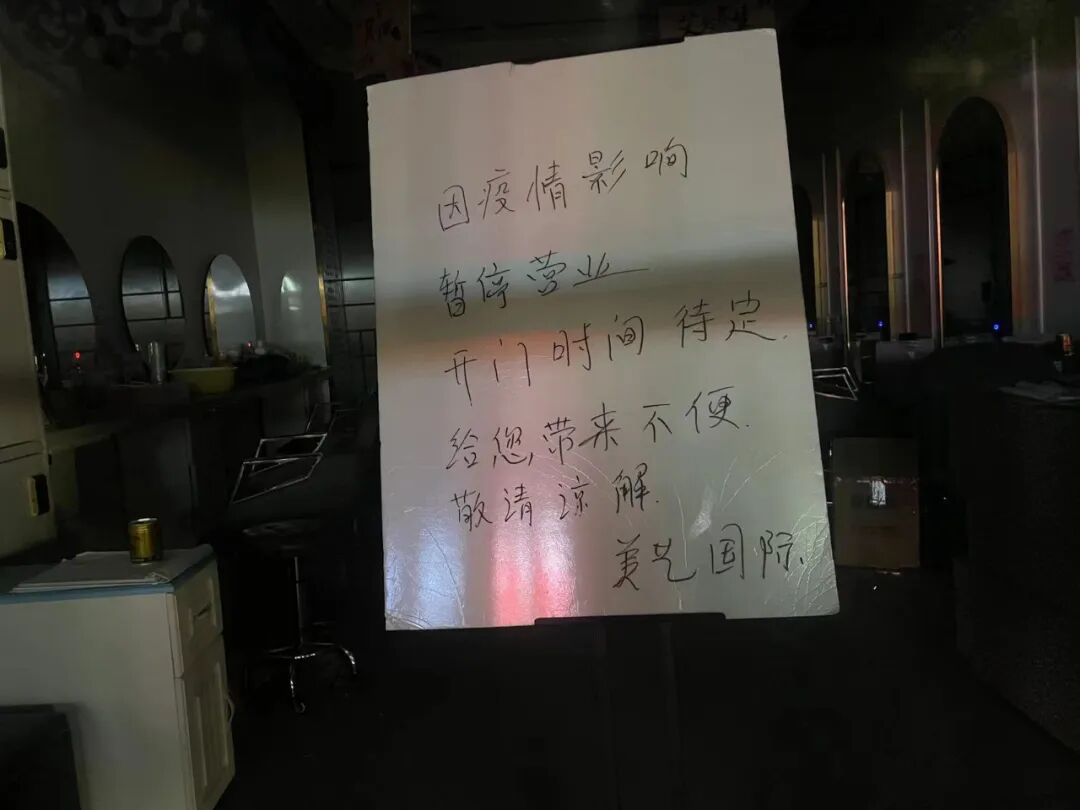 因疫情影响
暂停营业
开门时间待定.
给您带来不便.
敬请谅解.
美艺国际.